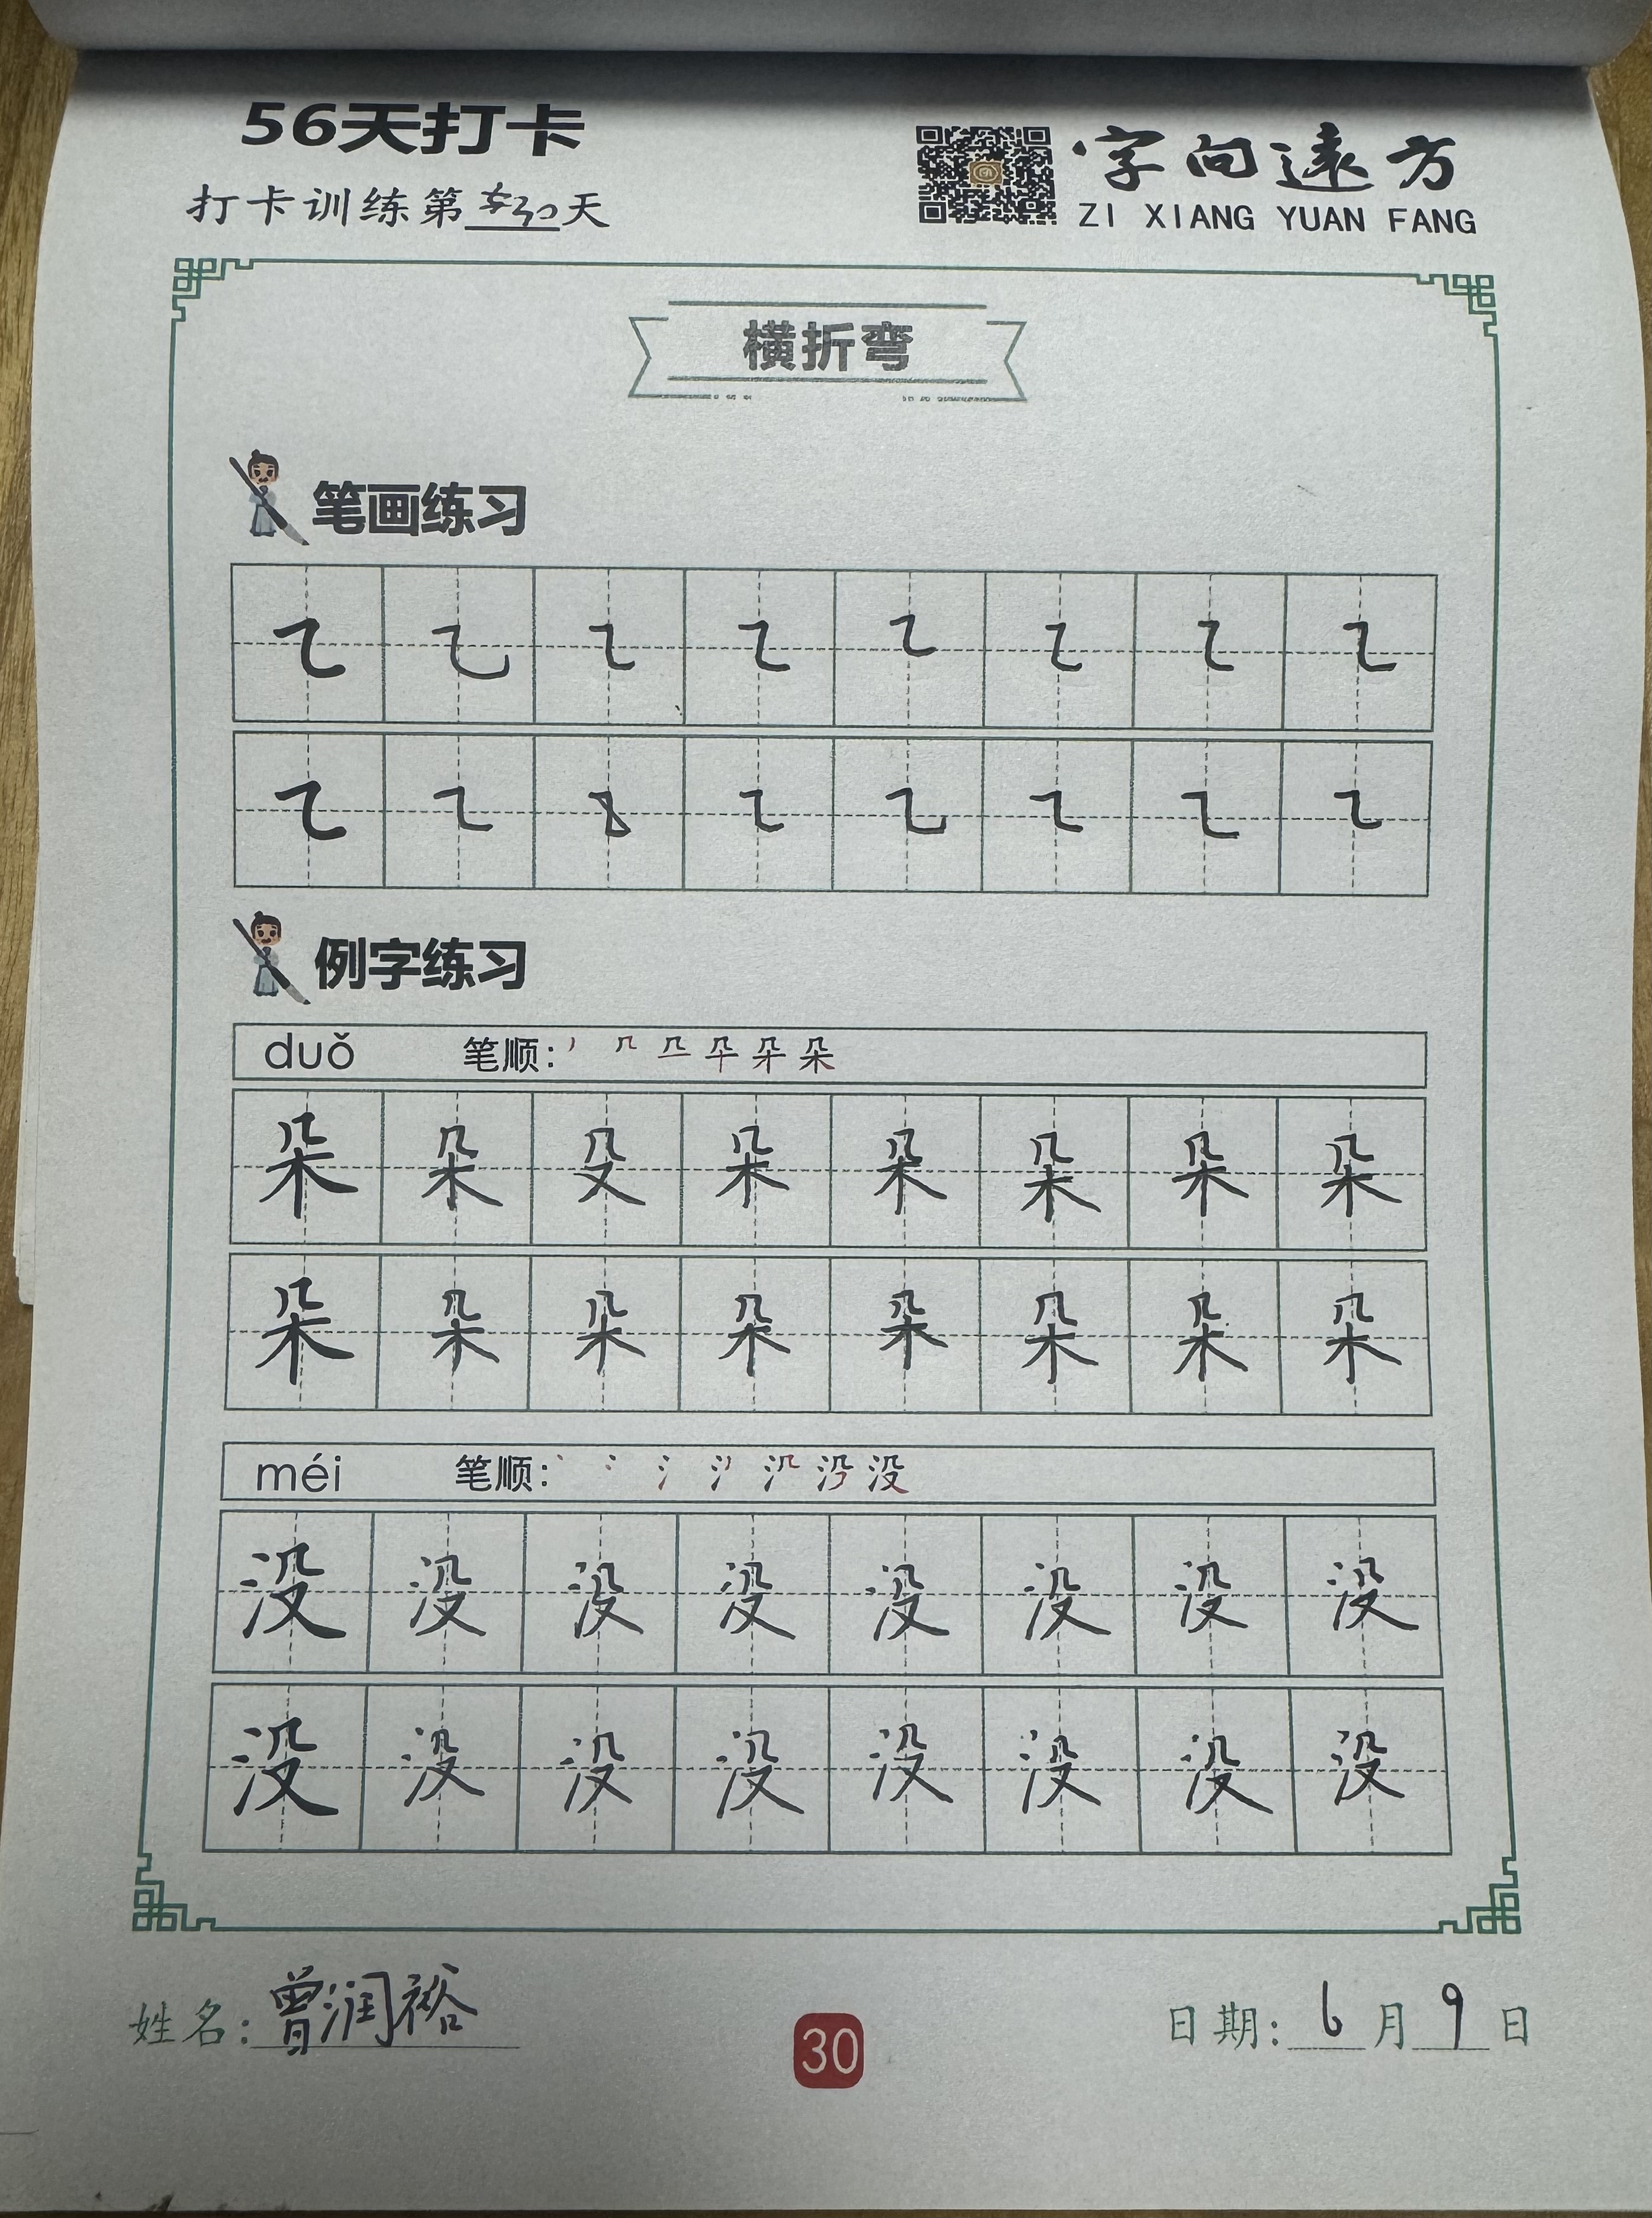 56天打卡
字向遠方
打卡训练第30天
ZI XIANG YUAN FANG
横折弯
笔画练习
㇍ ㇍ ㇍ ㇍ ㇍ ㇍ ㇍ ㇍
㇍ ㇍ ㇍ ㇍ ㇍ ㇍ ㇍ ㇍
例字练习
duǒ 笔顺: 朵
朵 朵 殳 朵 朵 朵 朵 朵
朵 朵 朵 朵 朵 朵 朵 朵
méi 笔顺: 没
没 没 没 没 没 没 没 没
没 没 没 没 没 没 没 没
姓名: 曾润裕
30
日期: 6月9日